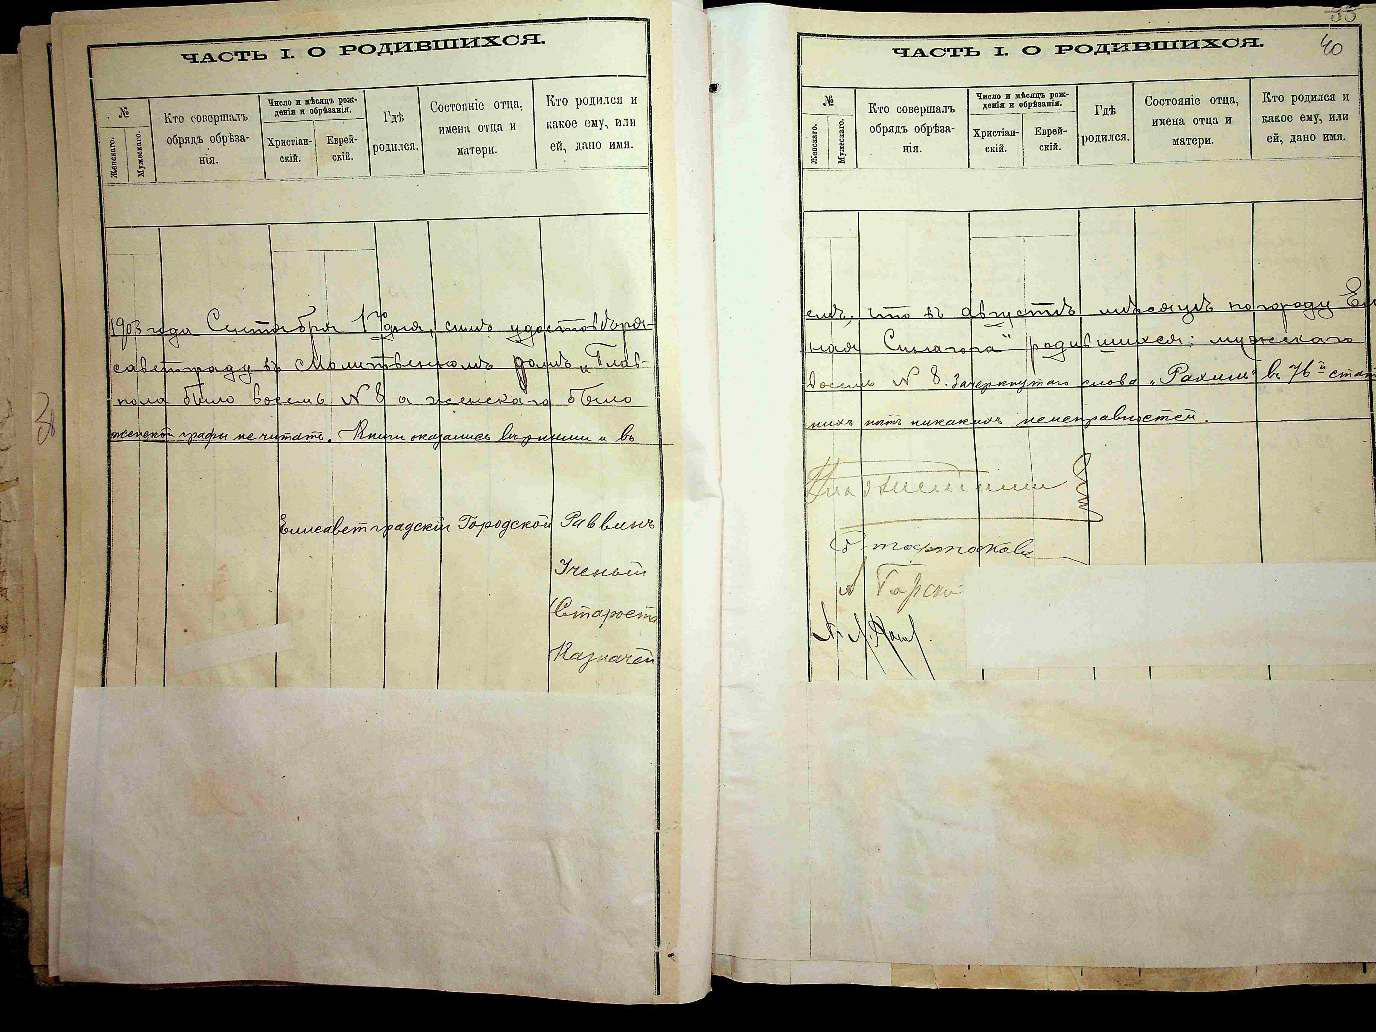 ЧАСТЬ I. О РОДИВШИХСЯ.
№
Женскаго.
Мужескаго.
Кто совершалъ
обрядъ обрѣза-
нія.
Число и мѣсяцъ рож-
денія и обрѣзанія.
Христіан-
скій.
Еврей-
скій.
Гдѣ
родился.
Состояніе отца,
имена отца и
матери.
Кто родился и
какое ему, или
ей, дано имя.
1903 года Сентября 1го дня, симъ удостовѣря-
саветграду въ Молитвенномъ домѣ и "Глав-
пола было восемь № 8 а женскаго было
женской графы не читать. Книги оказались вѣрными и въ
Елисаветградскій Городской Раввинъ
Ученый
Староста
Казначей
55
40
ЧАСТЬ I. О РОДИВШИХСЯ.
№
Женскаго.
Мужескаго.
Кто совершалъ
обрядъ обрѣза-
нія.
Число и мѣсяцъ рож-
денія и обрѣзанія.
Христіан-
скій.
Еврей-
скій.
Гдѣ
родился.
Состояніе отца,
имена отца и
матери.
Кто родился и
какое ему, или
ей, дано имя.
емъ, что въ Августѣ мѣсяцѣ по городу Ели
ная Синагога" родившихся: мужскаго
восемь № 8. Зачеркнутаго слова "Рахиль" въ 76й стат
нихъ нѣтъ никакихъ неисправностей.